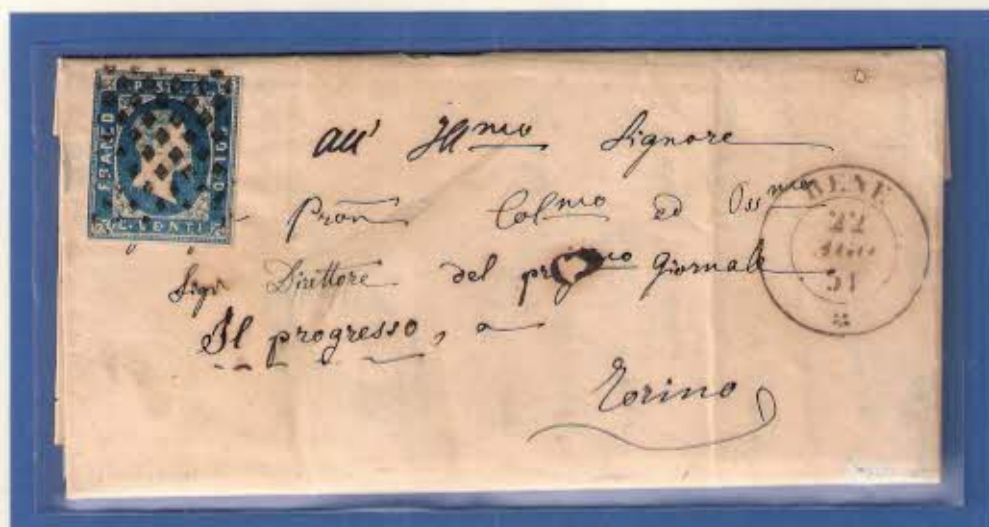 FRANCO
C. VENTI
all' Illmo Signore
Pron Colmo ed Ossmo
Sigr Direttore del pregmo giornale
Il progresso, a
Torino
BENE
22
51